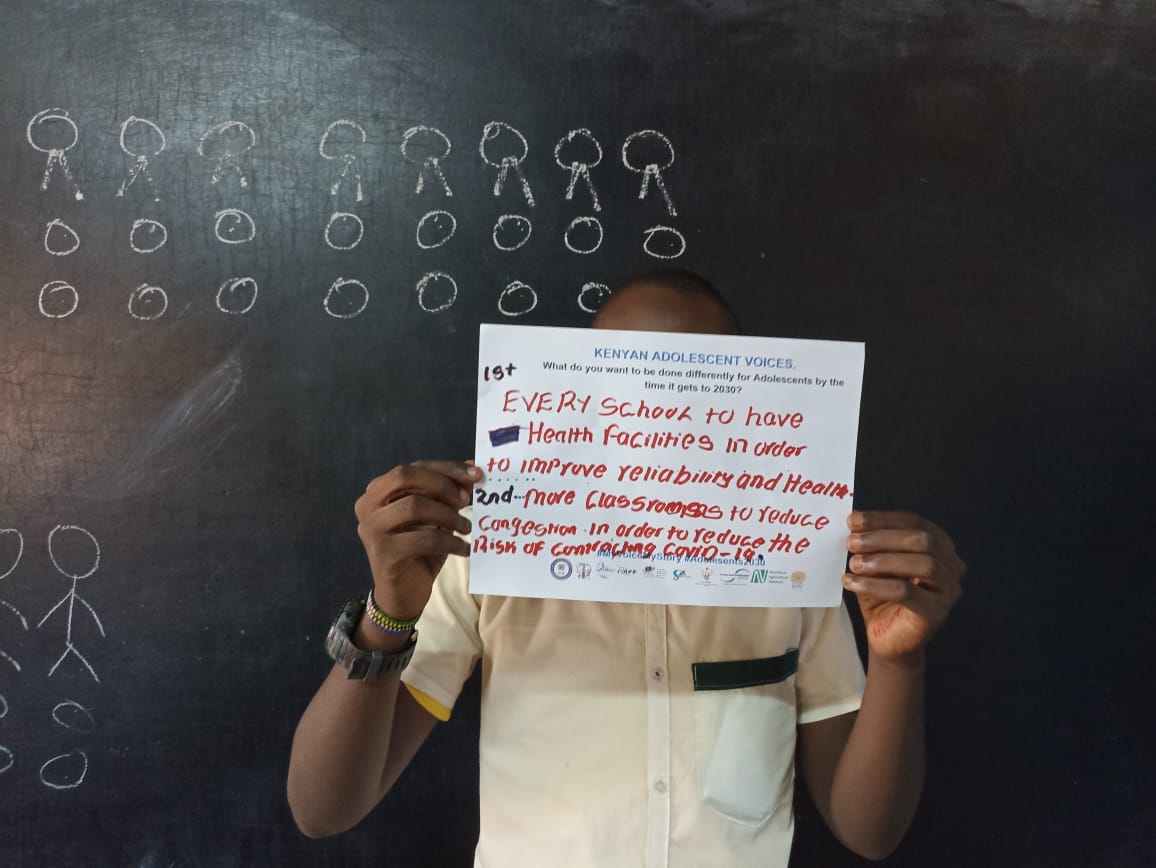 KENYAN ADOLESCENT VOICES.
What do you want to be done differently for Adolescents by the
time it gets to 2030?
1st
EVERY School to have
Health Facilities In order
to improve reliability and Health.
2nd more Classrooms to reduce
Congestion In order to reduce the
Risk of Contracting Covid-19.
#MyVoiceMyStory #Adolesents2030